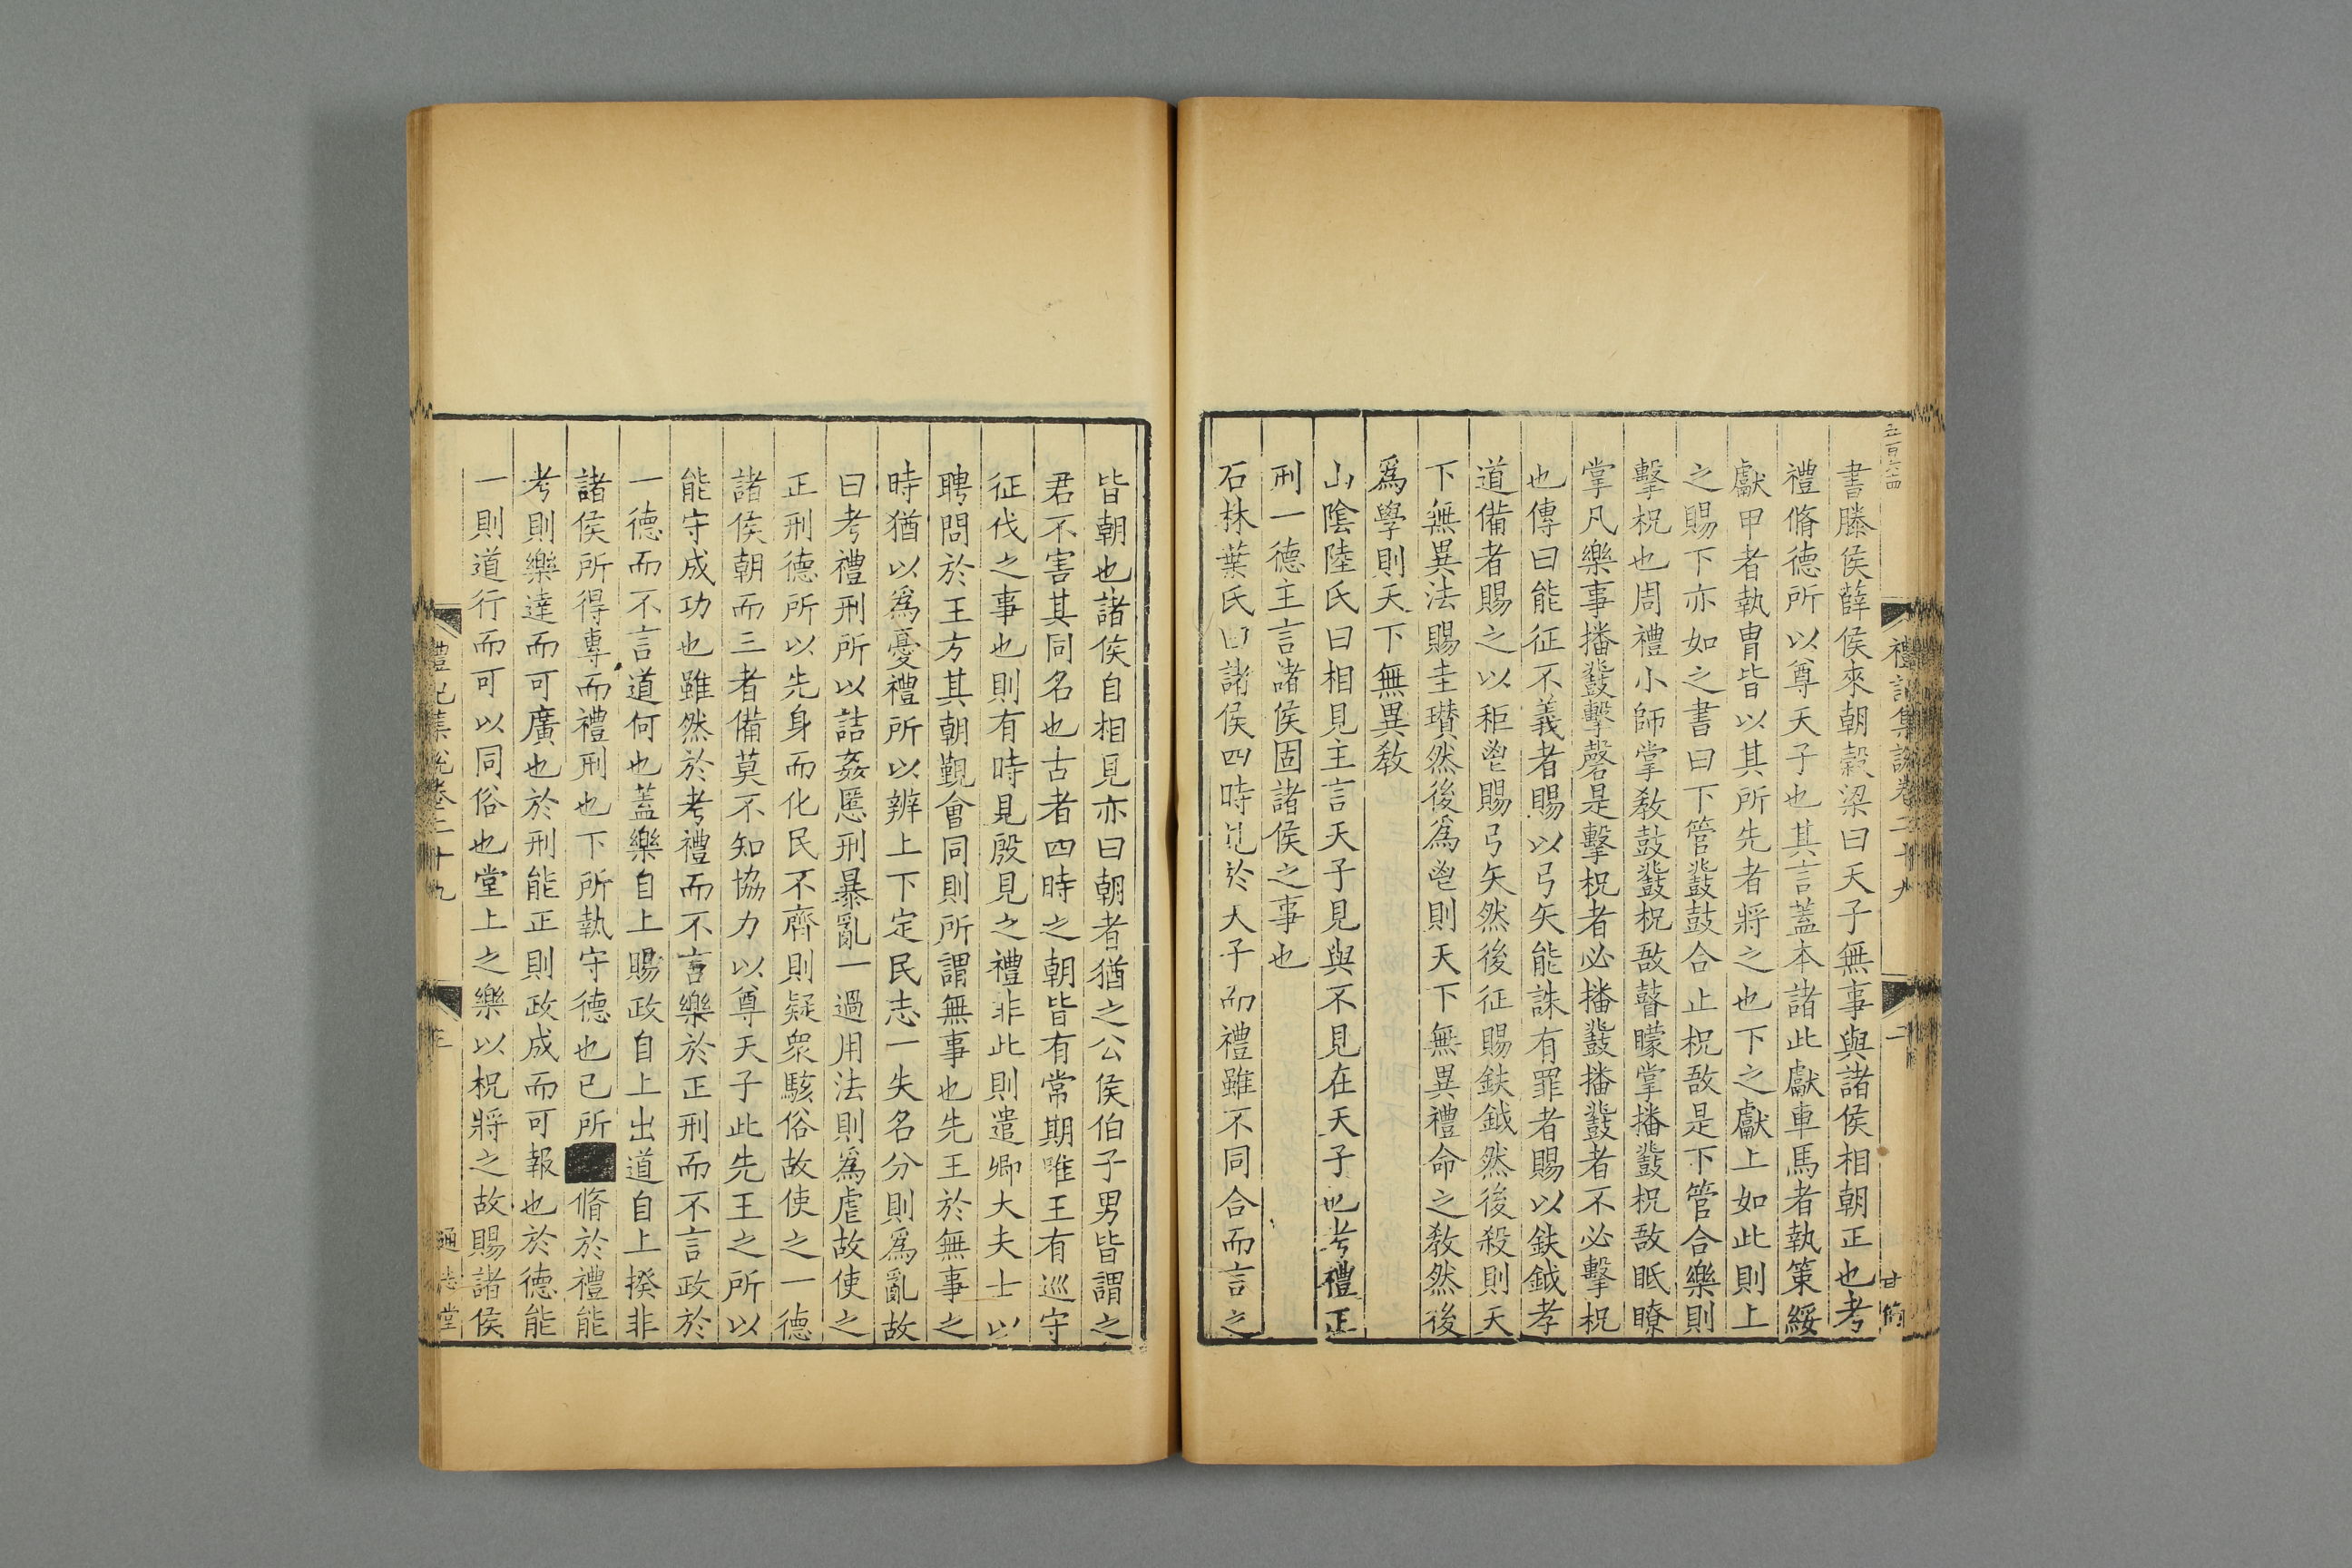 五百六十四
禮記集說卷二十九
二
甘簡
書滕侯薛侯來朝穀梁曰天子無事與諸侯相朝正也考
禮脩德所以尊天子也其言蓋本諸此獻車馬者執策綏
獻甲者執胄皆以其所先者將之也下之獻上如此則上
之賜下亦如之書曰下管鼗鼓合止柷敔是下管合樂則
擊柷也周禮小師掌教鼓鼗柷敔瞽矇掌播鼗柷敔眡瞭
掌凡樂事播鼗擊磬是擊柷者必播鼗播鼗者不必擊柷
也傳曰能征不義者賜以弓矢能誅有罪者賜以鈇鉞孝
道備者賜之以秬鬯賜弓矢然後征賜鈇鉞然後殺則天
下無異法賜圭瓚然後為鬯則天下無異禮命之教然後
為學則天下無異教
山陰陸氏曰相見主言天子見與不見在天子也考禮正
刑一德主言諸侯固諸侯之事也
石林葉氏曰諸侯四時見於天子而禮雖不同合而言之
皆朝也諸侯自相見亦曰朝者猶之公侯伯子男皆謂之
君不害其同名也古者四時之朝皆有常期唯王有巡守
征伐之事也則有時見殷見之禮非此則遣卿大夫士以
聘問於王方其朝覲會同則所謂無事也先王於無事之
時猶以為憂禮所以辨上下定民志一失名分則為亂故
曰考禮刑所以詰姦慝刑暴亂一過用法則為虐故使之
正刑德所以先身而化民不齊則疑衆駭俗故使之一德
諸侯朝而三者備莫不知協力以尊天子此先王之所以
能守成功也雖然於考禮而不言樂於正刑而不言政於
一德而不言道何也蓋樂自上賜政自上出道自上揆非
諸侯所得專而禮刑也下所執守德也已所脩於禮能
考則樂達而可廣也於刑能正則政成而可報也於德能
一則道行而可以同俗也堂上之樂以柷將之故賜諸侯
禮記集說卷二十九
三
通志堂